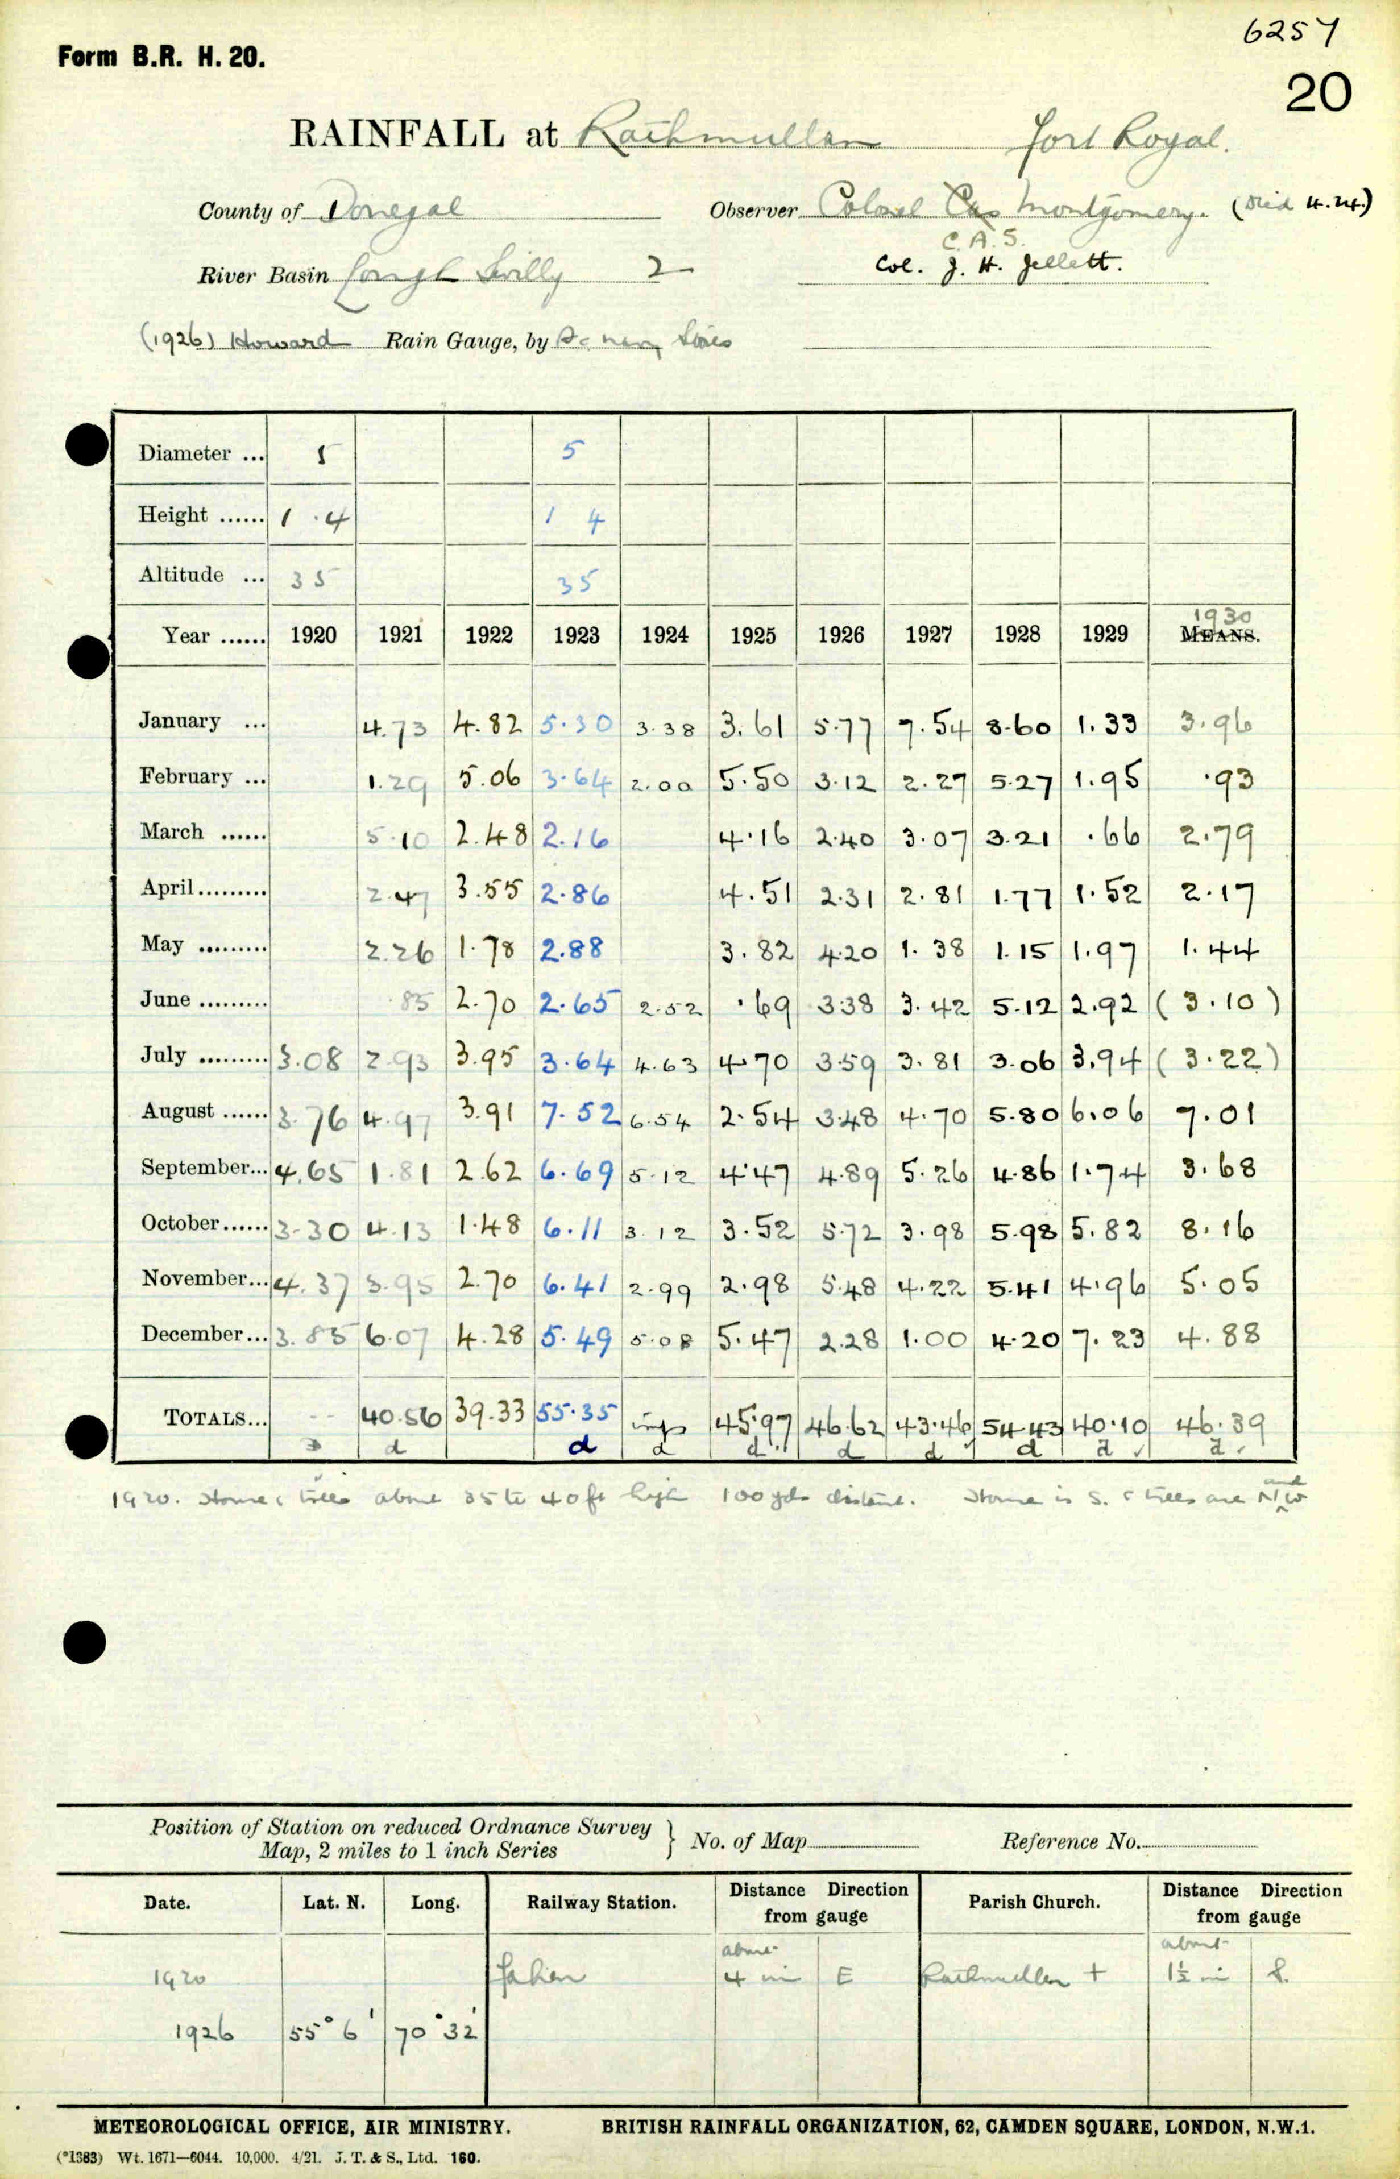 6257
Form B.R. H. 20.
20
RAINFALL at Rathmullen Fort Royal.
County of Donegal Observer Colonel Montgomery. (Died 4.24.)
C. A. S.
River Basin Lough Swilly 2 Col. J. H. Jellett.
(1926) Howard Rain Gauge, by
Diameter ... 5 5
Height ...... 1 . 4 1 4
Altitude ... 35 35
1930
Year ...... 1920 1921 1922 1923 1924 1925 1926 1927 1928 1929 MEANS.
January ... 4.73 4.82 5.30 3.38 3.61 5.77 7.54 8.60 1.33 3.96
February ... 1.29 5.06 3.64 2.00 5.50 3.12 2.27 5.27 1.95 .93
March ...... 5.10 2.48 2.16 4.16 2.40 3.07 3.21 .66 2.79
April ......... 2.47 3.55 2.86 4.51 2.31 2.81 1.77 1.52 2.17
May ......... 2.26 1.78 2.88 3.82 4.20 1.38 1.15 1.97 1.44
June ......... .85 2.70 2.65 2.52 .69 3.38 3.42 5.12 2.92 (3.10)
July ......... 3.08 2.93 3.95 3.64 4.63 4.70 3.59 3.81 3.06 3.94 (3.22)
August ...... 3.76 4.97 3.91 7.52 6.54 2.54 3.48 4.70 5.80 6.06 7.01
September... 4.65 1.81 2.62 6.69 5.12 4.47 4.89 5.26 4.86 1.74 3.68
October ...... 3.30 4.13 1.48 6.11 3.12 3.52 5.72 3.98 5.98 5.82 8.16
November... 4.37 3.95 2.70 6.41 2.99 2.98 5.48 4.22 5.41 4.96 5.05
December... 3.85 6.07 4.28 5.49 5.08 5.47 2.28 1.00 4.20 7.23 4.88
TOTALS... -- 40.56 39.33 55.35 imp 45.97 46.62 43.46 54.43 40.10 46.39
d d d d d d d d d
1920. House & trees about 35 to 40 ft high 100 yds distant. House is S. & trees are N and W
Position of Station on reduced Ordnance Survey Map, 2 miles to 1 inch Series } No. of Map Reference No.
Date. Lat. N. Long. Railway Station. Distance Direction from gauge Parish Church. Distance Direction from gauge
1920 Fahan about 4 mi E Rathmullen + about 1½ mi S.
1926 55° 6' 70° 32'
METEOROLOGICAL OFFICE, AIR MINISTRY. BRITISH RAINFALL ORGANIZATION, 62, CAMDEN SQUARE, LONDON, N.W.1.
(*1383) Wt. 1671—6044. 10,000. 4/21. J. T. & S., Ltd. 160.